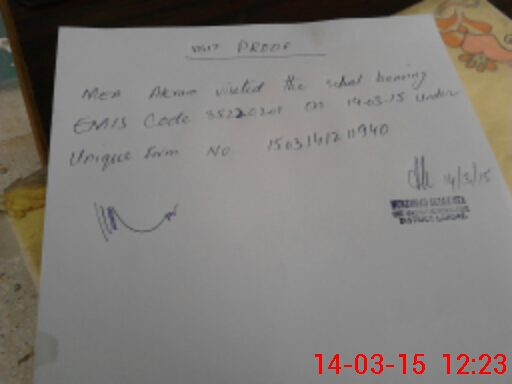 VISIT PROOF
MEA Akram visited the school bearing
EMIS Code 35220201 on 14-03-15 under
Unique form No. 1503141211940
14/3/15
DISTRICT LAHORE
14-03-15 12:23